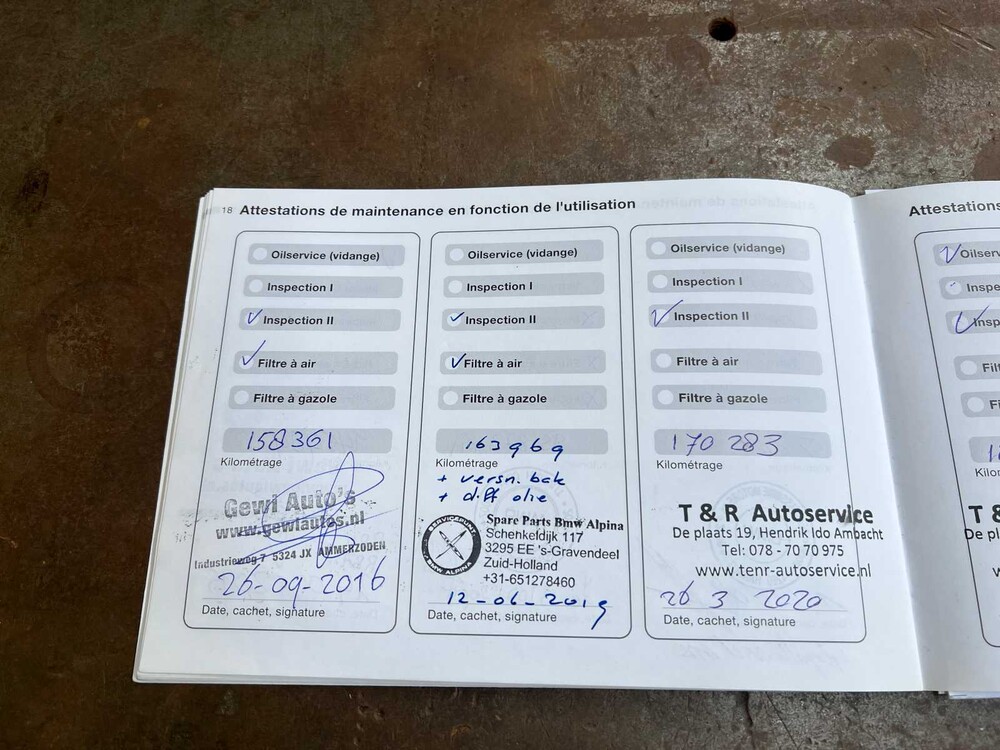 18 Attestations de maintenance en fonction de l'utilisation
Oilservice (vidange)
Inspection I
Inspection II
Filtre à air
Filtre à gazole
158361
Kilométrage
Gewi Auto's
www.gewiautos.nl
Industrieweg 7 5324 JX AMMERZODEN
26-09-2016
Date, cachet, signature
Oilservice (vidange)
Inspection I
Inspection II
Filtre à air
Filtre à gazole
163969
Kilométrage
+ versn. bak
+ diff olie
SERVICEPUNT
BMW ALPINA
Spare Parts Bmw Alpina
Schenkeldijk 117
3295 EE 's-Gravendeel
Zuid-Holland
+31-651278460
12-06-2019
Date, cachet, signature
Oilservice (vidange)
Inspection I
Inspection II
Filtre à air
Filtre à gazole
170 283
Kilométrage
T & R Autoservice
De plaats 19, Hendrik Ido Ambacht
Tel: 078 - 70 70 975
www.tenr-autoservice.nl
26 3 2020
Date, cachet, signature
Attestations
Oilserv
Inspe
Insp
Filt
Fi
Kilométrage
T &
De pl
Date,